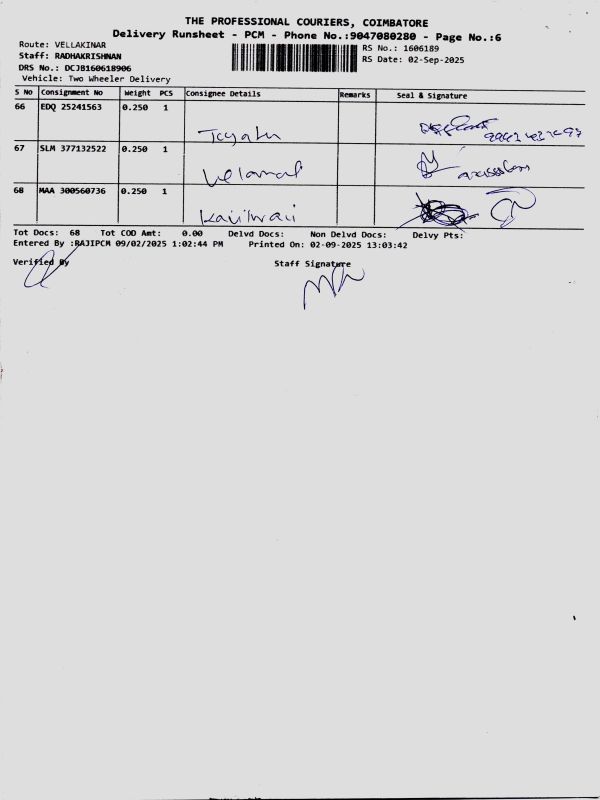 THE PROFESSIONAL COURIERS, COIMBATORE
Delivery Runsheet - PCM - Phone No.:9047080280 - Page No.:6
Route: VELLAKINAR
RS No.: 1606189
Staff: RADHAKRISHNAN
RS Date: 02-Sep-2025
DRS No.: DCJB160618906
Vehicle: Two Wheeler Delivery
S No Consignment No Weight PCS Consignee Details Remarks Seal & Signature
66 EDQ 25241563 0.250 1
67 SLM 377132522 0.250 1
68 MAA 300560736 0.250 1
Tot Docs: 68 Tot COD Amt: 0.00 Delvd Docs: Non Delvd Docs: Delvy Pts:
Entered By :RAJIPCM 09/02/2025 1:02:44 PM Printed On: 02-09-2025 13:03:42
Verified By
Staff Signature